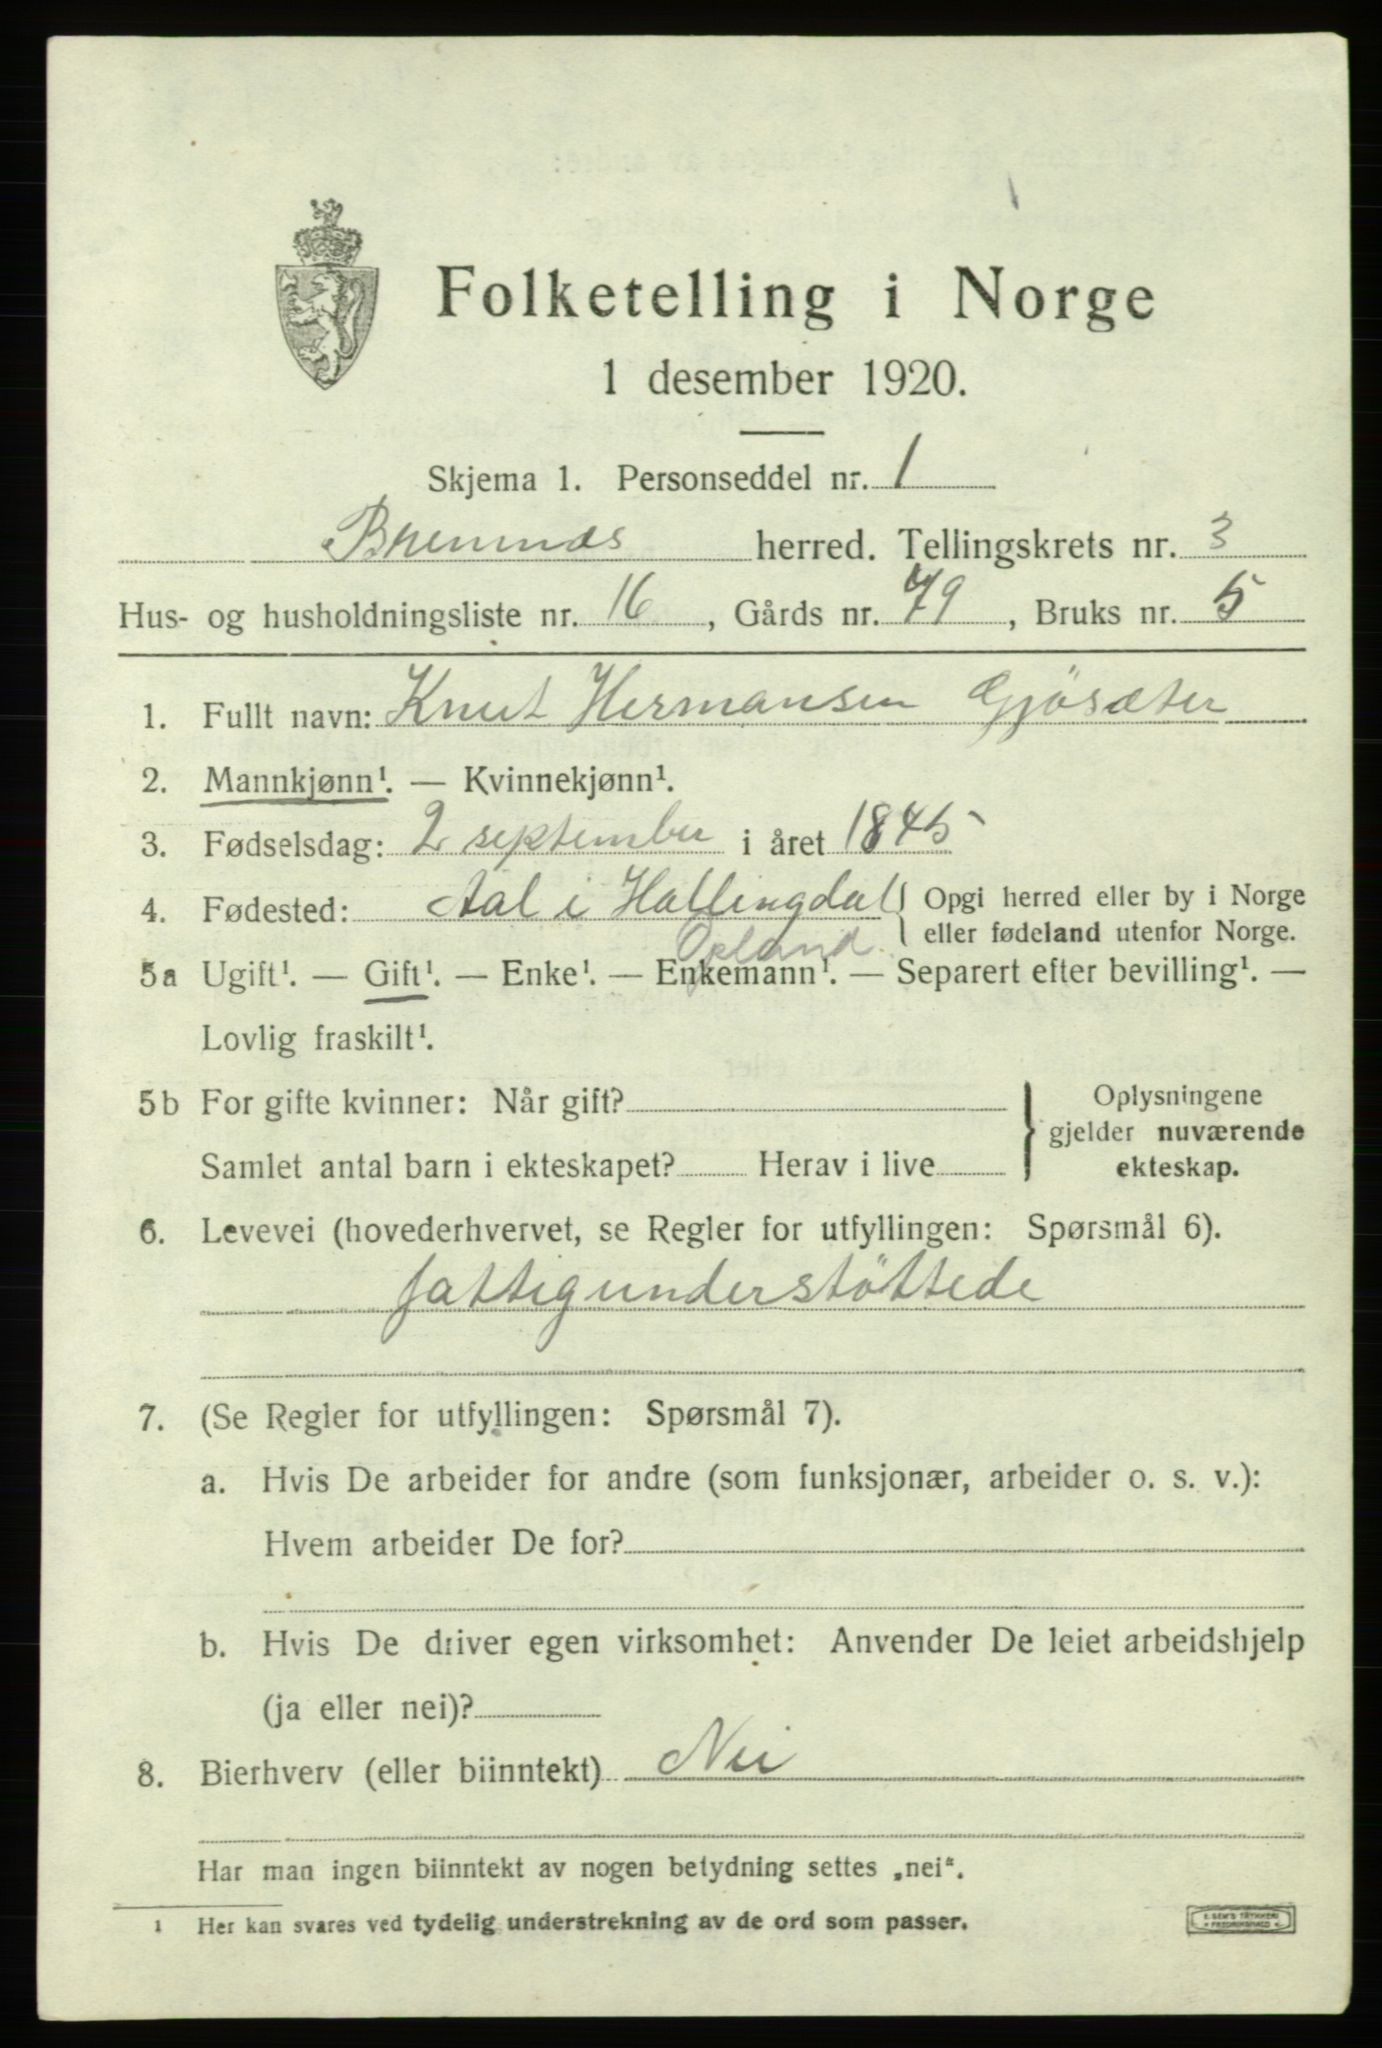 Folketelling i Norge
1 desember 1920.
Skjema 1. Personseddel nr. 1
Bremnes herred. Tellingskrets nr. 3
Hus- og husholdningsliste nr. 16, Gårds nr. 79, Bruks nr. 5
1. Fullt navn: Knut Hermansen Gjösæter
2. Mannkjønn¹. — Kvinnekjønn¹.
3. Fødselsdag: 2 september i året 1845
4. Fødested: Aal i Hallingdal { Opgi herred eller by i Norge
eller fødeland utenfor Norge.
Opland
5a Ugift¹. — Gift¹. — Enke¹. — Enkemann¹. — Separert efter bevilling¹. —
Lovlig fraskilt¹.
5b For gifte kvinner: Når gift? } Oplysningene
gjelder nuværende
Samlet antal barn i ekteskapet? Herav i live
ekteskap.
6. Levevei (hovederhvervet, se Regler for utfyllingen: Spørsmål 6).
fattigunderstöttede
7. (Se Regler for utfyllingen: Spørsmål 7).
a. Hvis De arbeider for andre (som funksjonær, arbeider o. s. v.):
Hvem arbeider De for?
b. Hvis De driver egen virksomhet: Anvender De leiet arbeidshjelp
(ja eller nei)?
8. Bierhverv (eller biinntekt) Nei
Har man ingen biinntekt av nogen betydning settes „nei“.
¹ Her kan svares ved tydelig understrekning av de ord som passer.